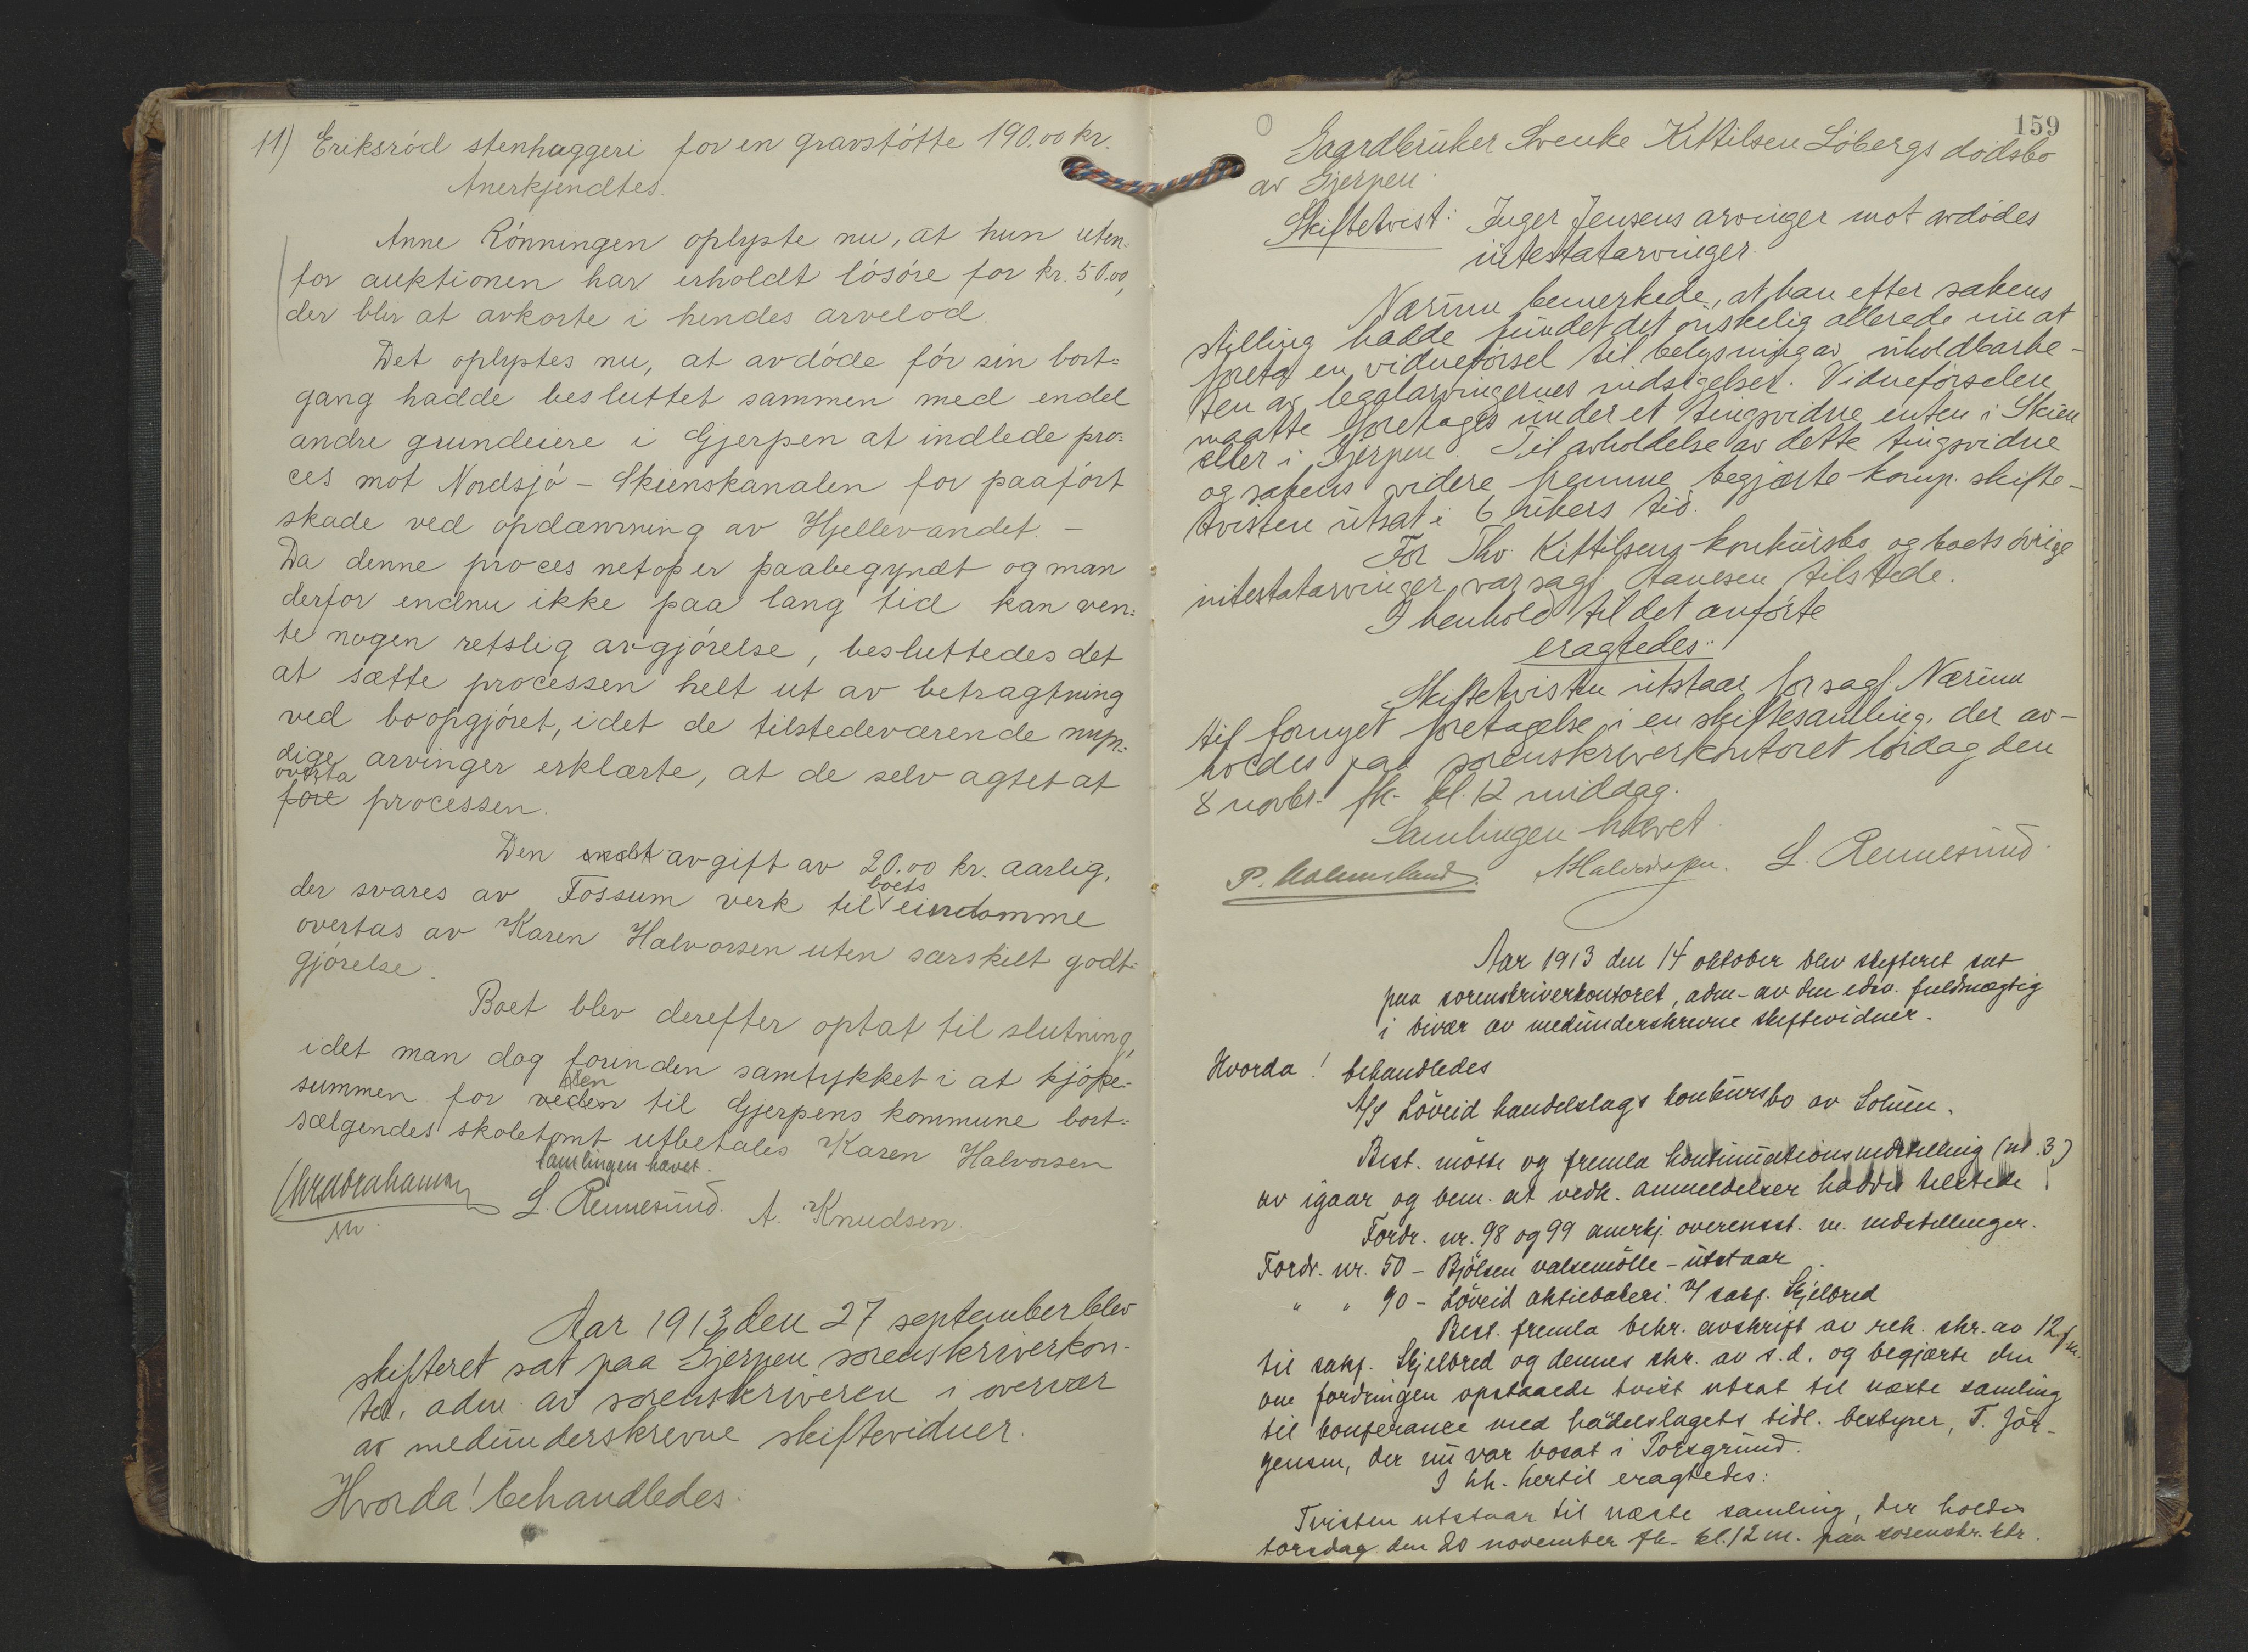 11) Eriksród stenhuggeri for en gravstótte 190.00 kr.
Anerkjendtes.
Anne Rónningen oplyste nu, at hun uten-
for auktionen har erholdt lósóre for kr. 50.00,
der blir at avkorte i hendes arvelod.
Det oplystes nu, at avdóde fór sin bort=
gang hadde besluttet sammen med endel
andre grundeiere i Gjerpen at indlede pro=
ces mot Nordsjó - Skienskanalen for paafórt
skade ved opdæmning av Hjellevandet. -
Da denne proces netop er paabegyndt og man
derfor endnu ikke paa lang tid kan ven=
te nogen retslig avgjórelse, besluttedes det
at sætte processen helt ut av betragtning
ved boopgjóret, idet de tilstedeværende myn=
dige arvinger erklærte, at de selv agtet at
overta
fóre processen.
Den avgift av 20.00 kr. aarlig,
der svares av Fossum verk til boets eiendomme
overtas av Karen Halvorsen uten særskilt godt=
gjórelse.
Boet blev derefter optat til slutning,
idet man dog forinden samtykket i at kjópe-
summen for den til Gjerpens kommune bort=
sælgendes skoletomt utbetales Karen Halvorsen
Samlingen hævet.
Chr Abrahamsen L. Rennesund. A. Knudsen.
Aar 1913 den 27 september blev
skifteret sat paa Gjerpen sorenskriverkon-
tor, adm. av sorenskriveren i overvær
av medunderskrevne skiftevidner.
Hvorda! behandledes:
159
Gaardbruker Svenke Kittilsen Lóbergs dódsbo
av Gjerpen.
Skiftetvist: Inger Jensens arvinger mot avdódes
intestatarvinger.
Nærum bemerkede, at han efter sakens
stilling hadde fundet det ónskelig allerede nu at
foreta en vidnefórsel til belysning av uholdbarhe-
ten av legalarvingernes indsigelser. Vidnefórselen
maatte foretages under et tingsvidne enten i Skien
eller i Gjerpen. Til avholdelse av dette tingsvidne
og sakens videre fremme begjærte komp. skifte-
tvisten utsat i 6 ukers tid.
For Thv. Kittilsens konkursbo og boets óvrige
intestatarvinger var sagf. Hansen tilstede.
I henhold til det anfórte
eragtedes:
Skiftetvisten utstaar for sagf. Nærum
til fornyet foretagelse i en skiftesamling, der av-
holdes paa sorenskriverkontoret lórdag den
8 novbr. fk. kl. 12 middag.
Samlingen hævet.
P. Holmsland. L. Rennesund.
Aar 1913 den 14 oktober blev skifteret sat
paa sorenskriverkontoret, adm. av den edsv. fuldmægtig
i bivær av medunderskrevne skiftevidner.
Hvorda! behandledes
A/S Lóveid handelslags konkursbo av Solum.
Best. mótte og fremla kontinuationsindstilling (nr. 3)
av igaar og bem. at vedk. anmeldelser hadde tilstede
Fordr. nr. 98 og 99 anerkj. overensst. m. indstillinger.
Fordr. nr. 50 - Bjólsen valsemólle - utstaar.
" " 90 - Lóveid aktiebakeri v/ sakf. Skjelbred
Best. fremla bekr. avskrift av rek. skr. av 12 f. m.
til sakf. Skjelbred og dennes skr. av s. d. og begjærte den
om fordringen opstaaede tvist utsat til næste samling
til konferance med handelslagets tidl. bestyrer, T. Jór-
gensen, der nu var bosat i Porsgrund.
I hh. hertil eragtedes:
Tvisten utstaar til næste samling, der holdes
torsdag den 20 november fk. kl. 12 m. paa sorenskr. ktr.